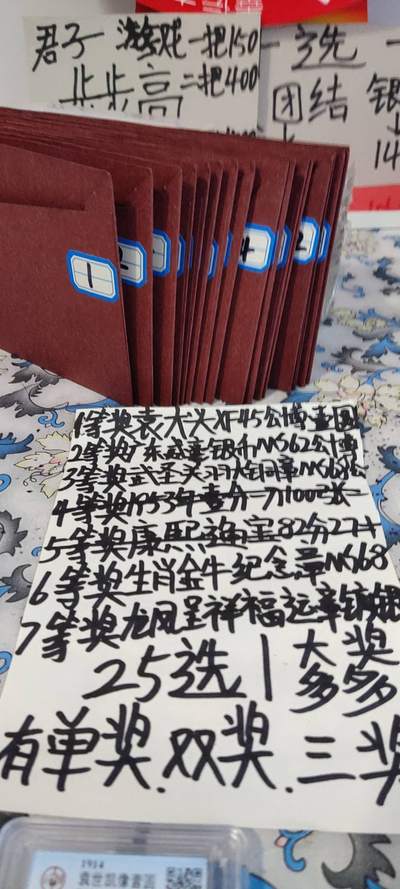 君子一游戏一把150
步步高二把400
一选一
团结
银
14
1
2
3
4
2
1等奖袁大头XF45公博壹圆
2等奖广东咸丰银币MS62公博
3等奖武圣关羽大铜章MS68公
4等奖1953年壹分一刀100张
5等奖康熙通宝82分27+
6等奖生肖金牛纪念章MS68
7等奖龙凤呈祥福运章镀银
25选1大奖多多
有单奖.双奖.三奖
1914
袁世凯像壹圆